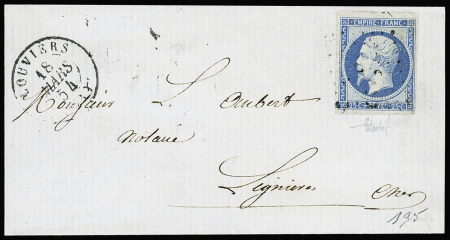 LOUVIERS
18
MARS
54
EMPIRE FRANC
25 c 25 c
Monsieur L. Aubert
notaire
Lignieres
Cher
195